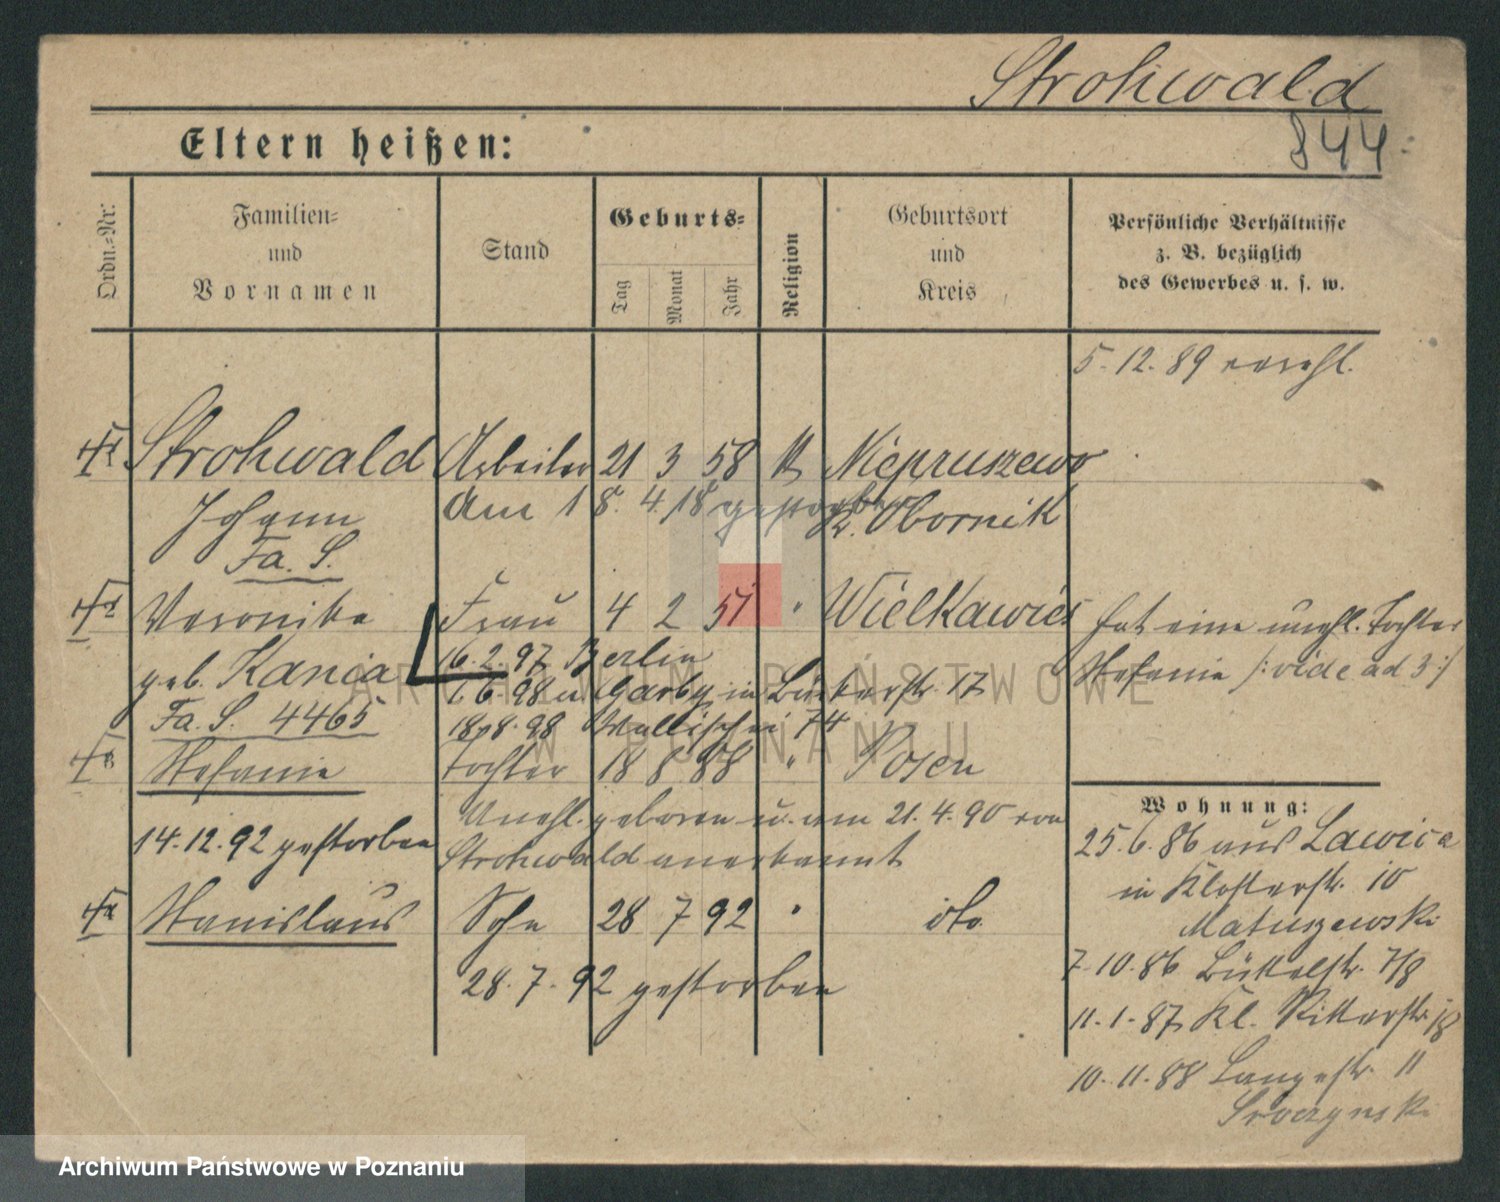 Strohwald
844
Eltern heißen:
Ordn.-Nr.
Familien- und Vornamen
Stand
Geburts-
Tag
Monat
Jahr
Religion
Geburtsort und Kreis
Persönliche Verhältnisse
z. B. bezüglich
des Gewerbes u. s. w.
5.12.89 verehl.
Strohwald Arbeiter 21 3 58 k Niepruszewo
Johann am 18.4.18 gestorben Kr. Obornik
Fa. S.
Veronika Frau 4 2 51 " Wielkawies
hat eine unehl. Tochter
Stefanie /: vide ad 3 :/
geb. Kania 16.2.97 Berlin
1.6.98 in Büttelstr. 17
Fa. S. 4465 98 Wallischei 74
Stefanie Tochter 18 8 88 " Posen
Unehl. geboren u. am 21.4.90 von
14.12.92 gestorben Strohwald anerkannt
Stanislaus Sohn 28 7 92 " dto.
28.7.92 gestorben
Wohnung:
25.6.86 aus Lawica
in Klosterstr. 10
Matuszewski
7.10.86 Büttelstr. 7/8
11.1.87 Kl. Ritterstr. 18
10.11.88 Langestr. 11
Sroczynski
ARCHIWUM PAŃSTWOWE
W POZNANIU
Archiwum Państwowe w Poznaniu